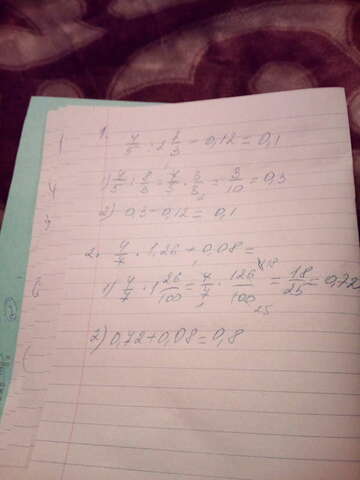 1.
4/5 : 2 2/3 - 0,12 = 0,1
1) 4/5 : 8/3 = 4/5 · 3/8 = 3/10 = 0,3
2) 0,3 - 0,12 = 0,1
2. 4/7 · 1,26 + 0,08 =
1) 4/7 · 1 26/100 = 4/7 · 126/100 = 18/25 = 0,72
2) 0,72 + 0,08 = 0,8